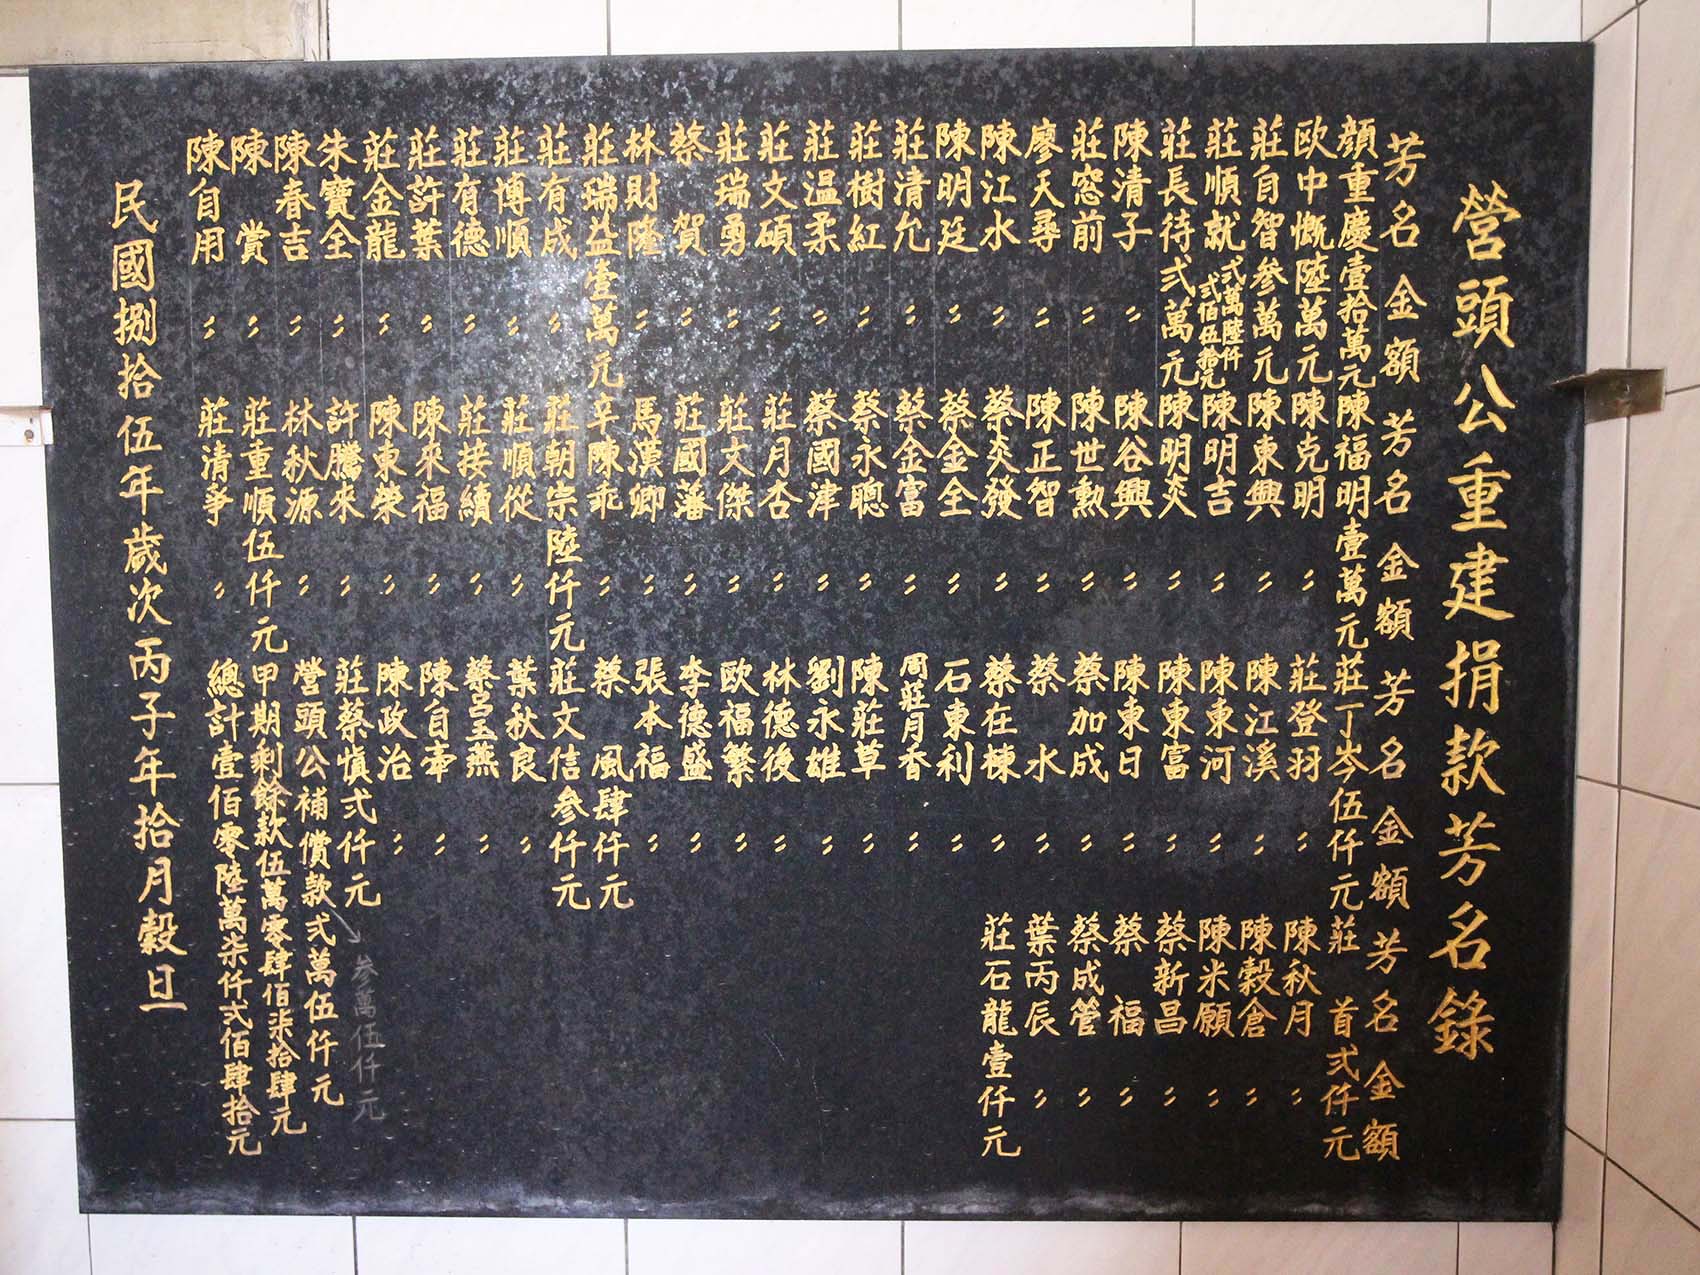 營頭公重建捐款芳名錄
芳名 金額 芳名 金額 芳名 金額 芳名 金額
顏重慶壹拾萬元
歐中慨陸萬元
莊自智參萬元
莊順就弍萬陸仟弍佰伍拾元
莊長待弍萬元
陳清子 〃
莊窓前 〃
廖天尋 〃
陳江水 〃
陳明廷 〃
莊清允 〃
莊樹紅 〃
莊温柔 〃
莊文碩 〃
莊瑞勇 〃
蔡 賀 〃
林財隆 〃
莊瑞益壹萬元
莊有成 〃
莊博順 〃
莊有德 〃
莊許葉 〃
莊金龍 〃
朱寶全 〃
陳春吉 〃
陳 賞 〃
陳自用 〃
陳福明壹萬元
陳克明 〃
陳東興 〃
陳明吉 〃
陳明炎 〃
陳谷興 〃
陳世勲 〃
陳正智 〃
蔡炎發 〃
蔡金全 〃
蔡金富 〃
蔡永聰 〃
蔡國津 〃
莊月杏 〃
莊文傑 〃
莊國藩 〃
馬漢卿 〃
辛陳乖 〃
莊朝宗陸仟元
莊順從 〃
莊接續 〃
陳來福 〃
陳東榮 〃
許騰來 〃
林秋源 〃
莊重順伍仟元
莊清爭 〃
莊丁岑伍仟元
莊登羽 〃
陳江溪 〃
陳東河 〃
陳東富 〃
陳東日 〃
蔡加成 〃
蔡 水 〃
蔡在棟 〃
石東利 〃
周莊月香 〃
陳莊草 〃
劉永雄 〃
林德後 〃
歐福繁 〃
李德盛 〃
張本福 〃
蔡 風肆仟元
莊文信參仟元
葉秋良 〃
蔡呂玉燕 〃
陳自牽 〃
陳政治 〃
莊蔡慎弍仟元
營頭公補償款弍萬伍仟元
參萬伍仟元
甲期剩餘款伍萬零肆佰柒拾肆元
總計壹佰零陸萬柒仟弍佰肆拾元
莊 首弍仟元
陳秋月 〃
陳穀倉 〃
陳米願 〃
蔡新昌 〃
蔡 福 〃
蔡成管 〃
葉丙辰 〃
莊石龍壹仟元
民國捌拾伍年歲次丙子年拾月穀旦